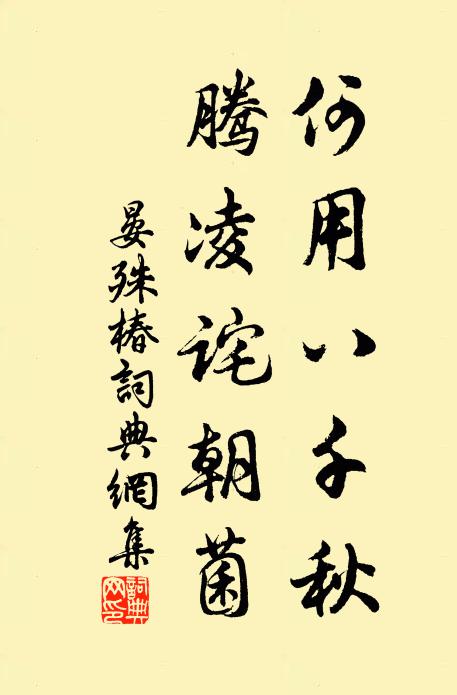 何用八千秋
腾凌诧朝菌
晏殊椿詞典網集
詞典网印